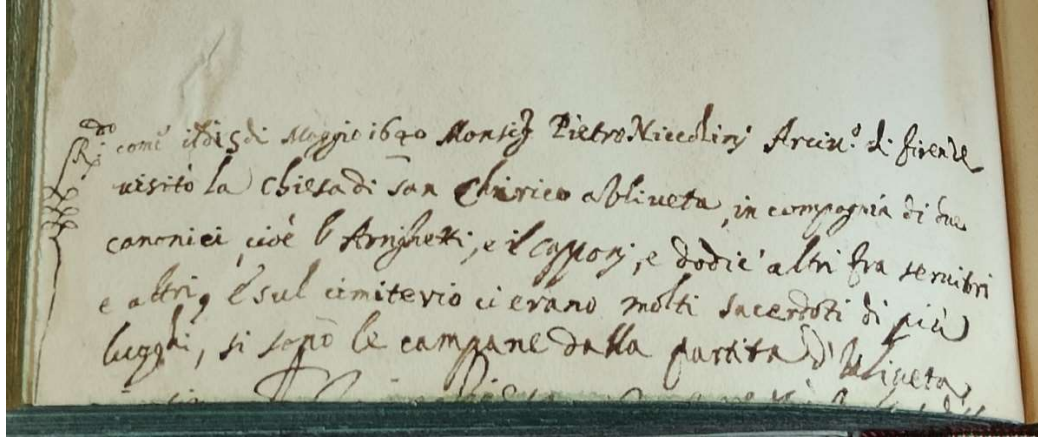 R.do come il dì 5 di Maggio 1640 Monsig.r Pietro Niccolinj Arciv.o di firenze
visitò la chiesa di san Chirico a Uliveta, in compagnia di due
canonici, cioè l'Arrighetti, e il capponj, e dodici altri fra servitori
e altri, e sul cimiterio ci erano molti sacerdoti di più
luoghi, si sonò le campane dalla partita d'Uliveta,